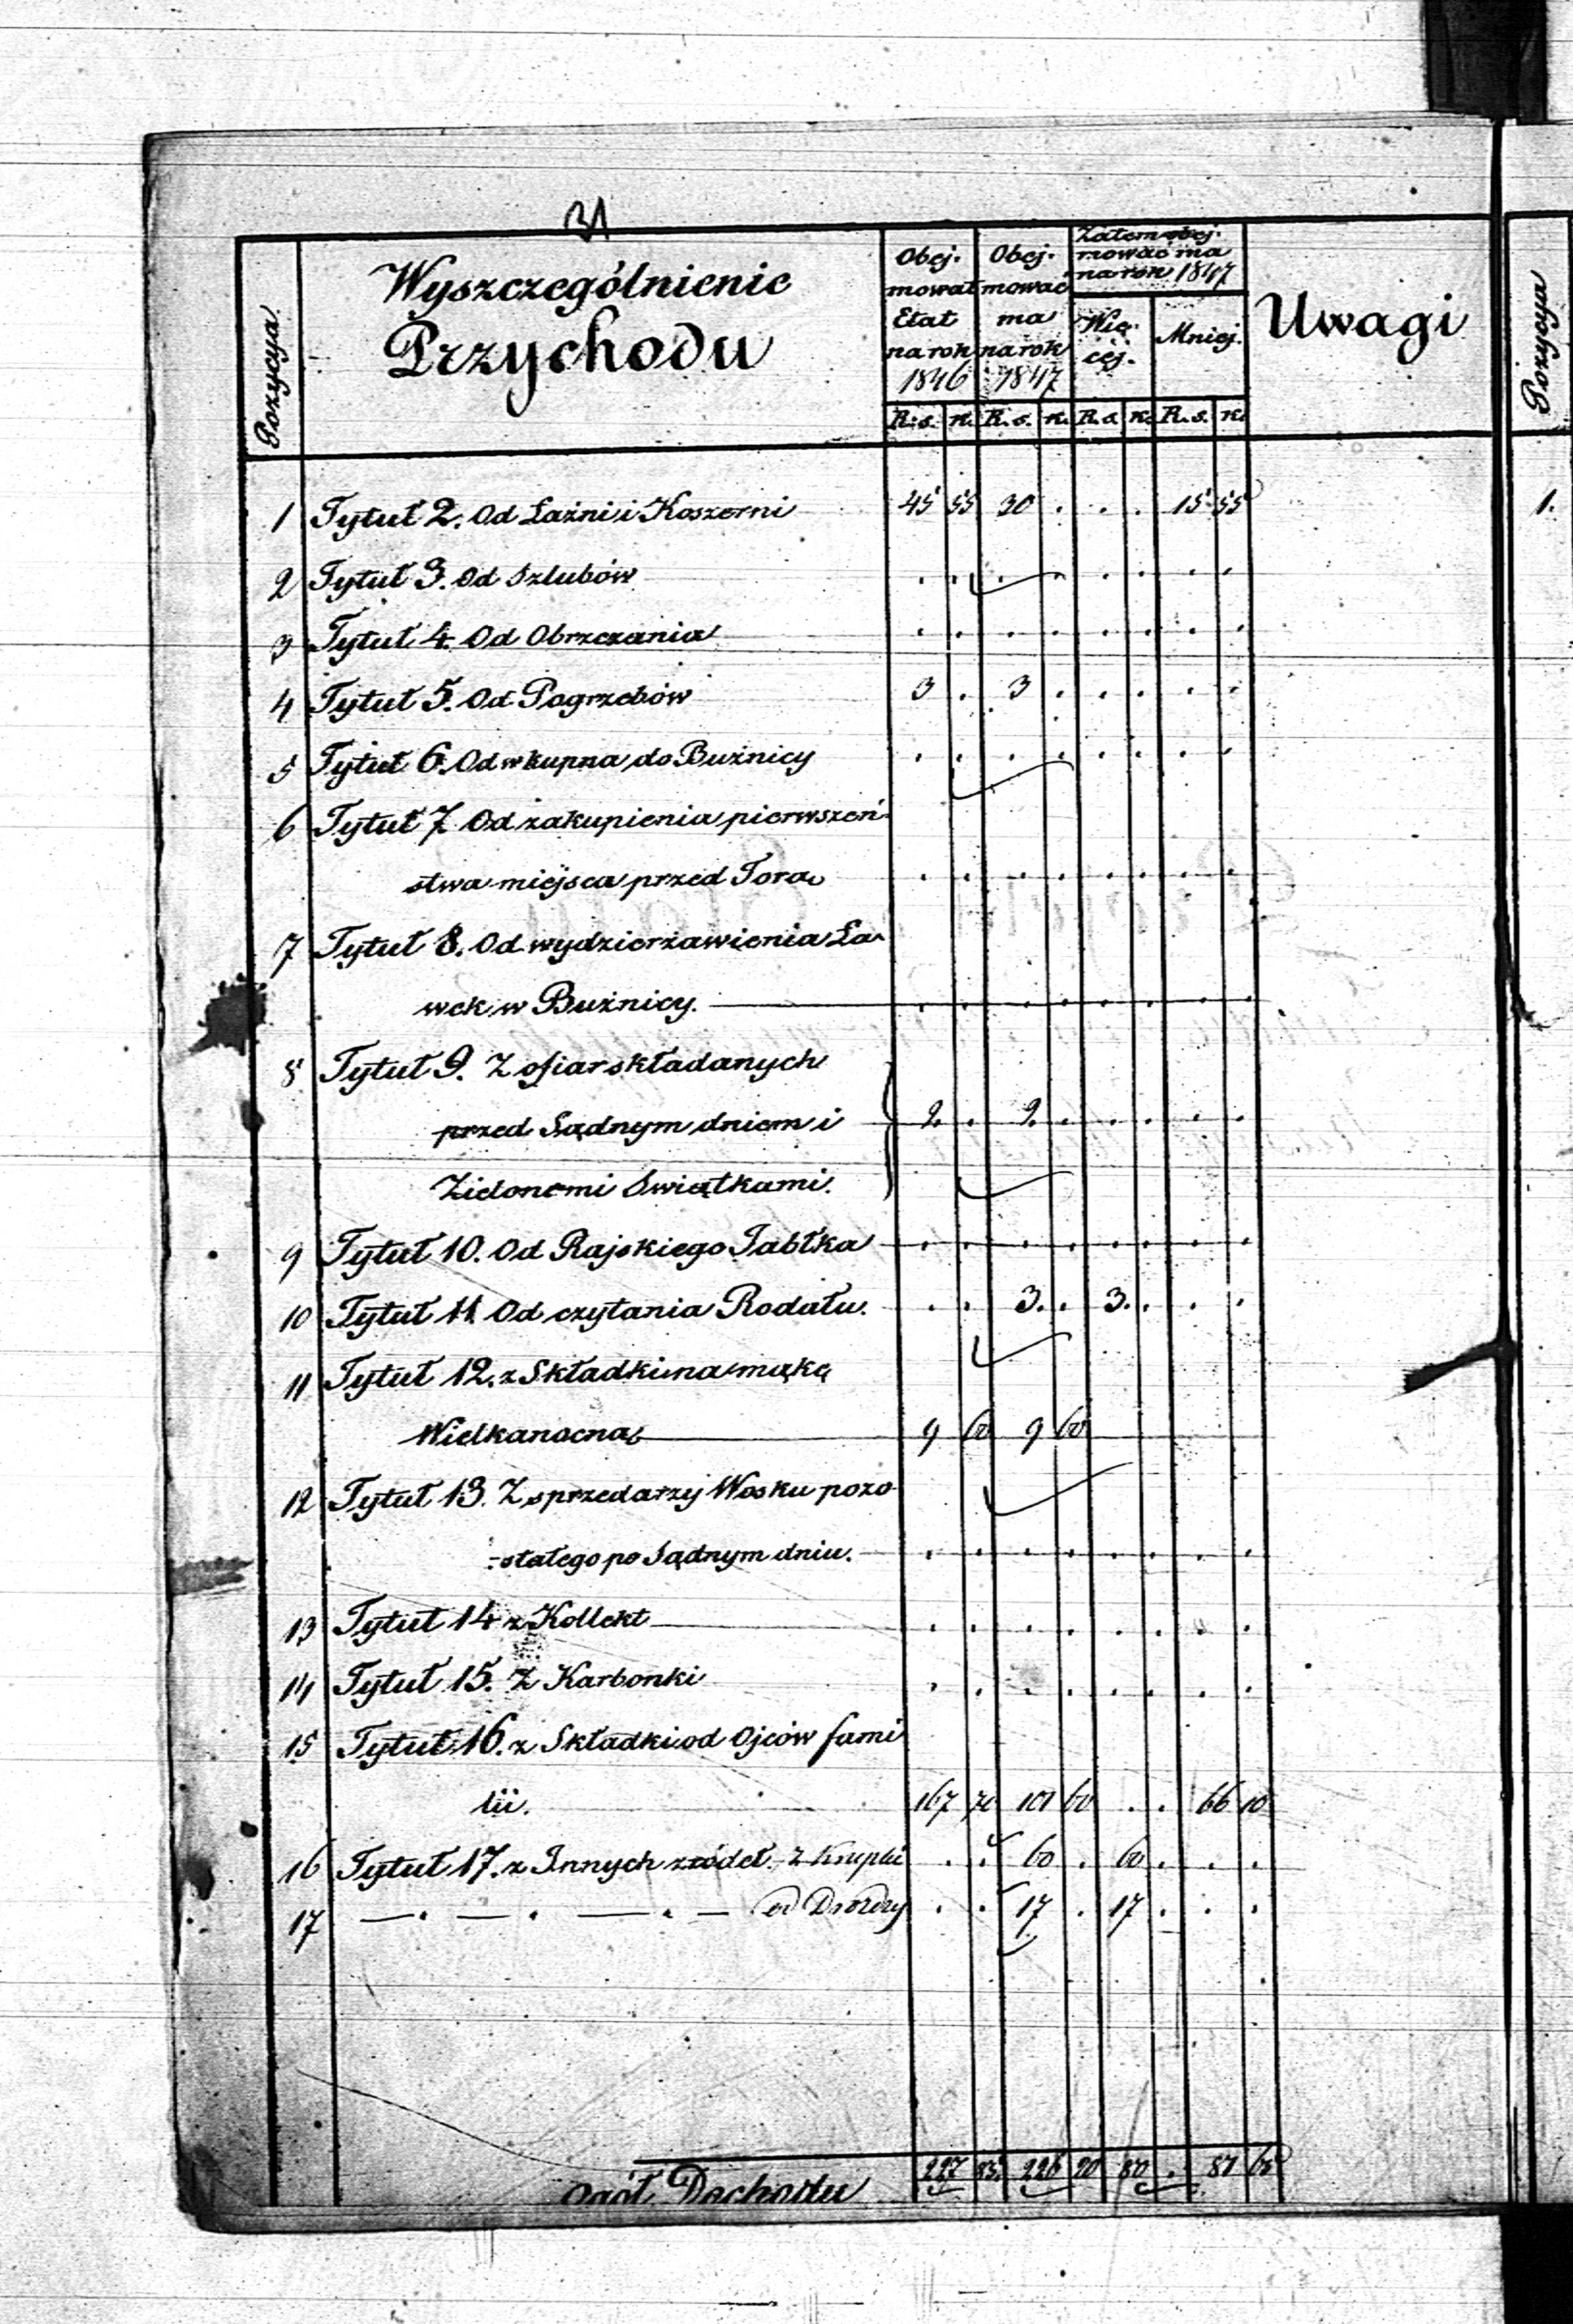 31
Pozycya
Wyszczególnienie
Przychodu
Obej-
mował
Etat
na rok
1846
Obej-
mować
ma
na rok
1847
Zatem obej-
mować ma
na rok 1847
Wię-
cej.
Mniej.
Uwagi
Pozycya
R.s. k. R.s. k. R.s. k. R.s. k.
1 Tytuł 2. Od Łaźni i Koszerni 45 55 30 . . . 15 55
1.
2 Tytuł 3. Od Szlubów . . . . . . . .
3 Tytuł 4. Od Obrzezania . . . . . . . .
4 Tytuł 5. Od Pogrzebów 3 . 3 . . . . .
5 Tytuł 6. Od wkupna do Bużnicy . . . . . . . .
6 Tytuł 7. Od zakupienia pierwszeń-
stwa miejsca przed Torą . . . . . . . .
7 Tytuł 8. Od wydzierżawienia Ła-
wek w Bużnicy. . . . . . . . .
8 Tytuł 9. Z ofiar składanych
przed Sądnym dniem i 2 . 2 . . . . .
Zielonemi Świątkami.
9 Tytuł 10. Od Rajskiego Jabłka . . . . . . . .
10 Tytuł 11. Od czytania Rodału. . . 3 . 3 . . .
11 Tytuł 12. z Składki na mąkę
Wielkanocną 9 60 9 60
12 Tytuł 13. Z sprzedarzy Wosku pozo-
-stałego po Sądnym dniu. . . . . . . . .
13 Tytuł 14 z Kollekt . . . . . . . .
14 Tytuł 15. Z Karbonki . . . . . . . .
15 Tytuł 16. z Składki od Ojców fami
lii. 167 70 101 60 . . 66 10
16 Tytuł 17. z Innych źródeł - z Krupki . . 60 . 60 . . .
17 — . — . — . — od Drożdży . . 17 . 17 . . .
Ogół Dochodu 227 85 226 20 80 . 81 65